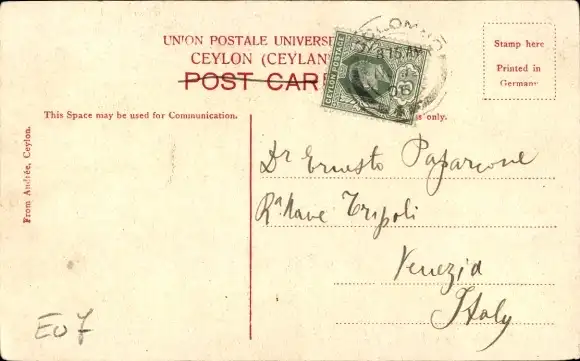 UNION POSTALE UNIVERSE
CEYLON (CEYLAN
POST CAR
COLOMBO
8.15 AM
CEYLON POSTAGE
Stamp here
Printed in
Germany
This Space may be used for Communication.
is only.
From Andrée, Ceylon.
Dr Ernesto Paparcone
Ra Nave Tripoli
Venezia
Italy
E07